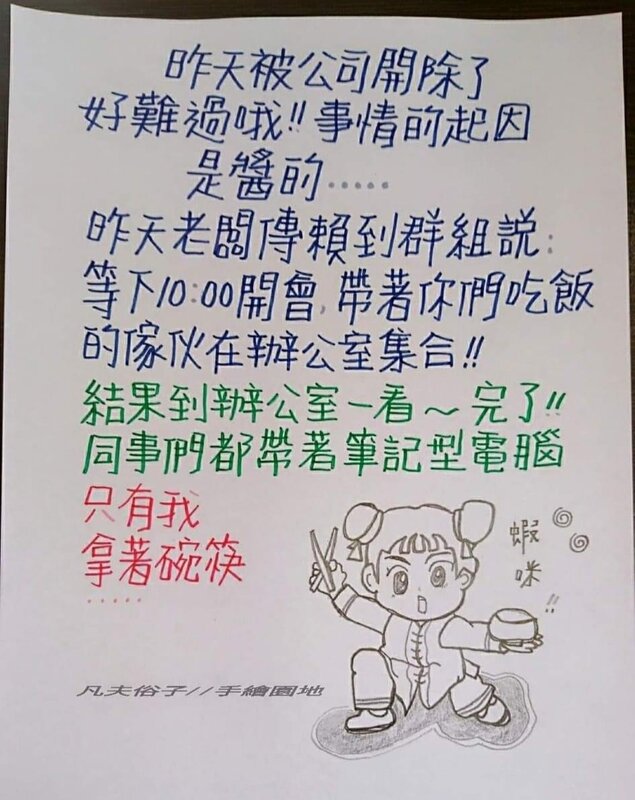 昨天被公司開除了
好難過哦!! 事情的起因
是醬的.....
昨天老闆傳賴到群組説:
等下10:00開會,帶著你們吃飯
的傢伙在辦公室集合!!
結果到辦公室一看～完了!!
同事們都帶著筆記型電腦
只有我
拿著碗筷
.....
蝦咪!!
凡夫俗子//手繪園地